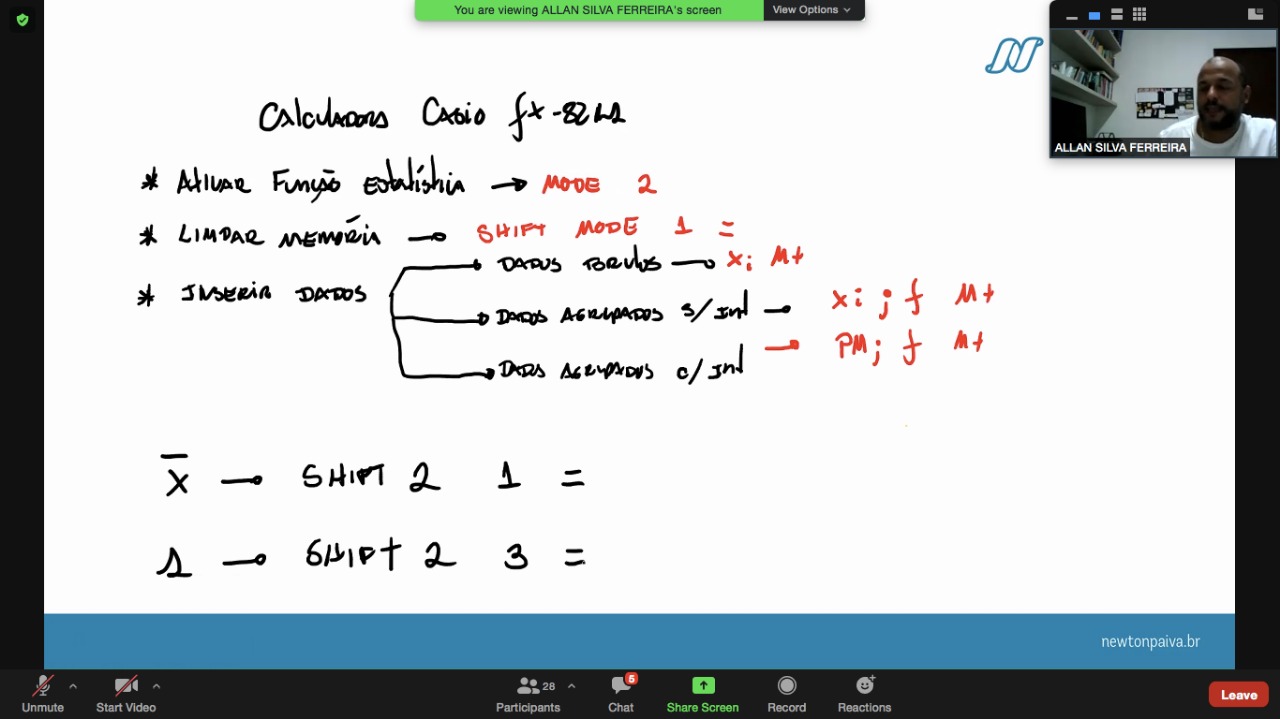 You are viewing ALLAN SILVA FERREIRA's screen
View Options
ALLAN SILVA FERREIRA
Calculadora Casio fx-82MS
* Ativar Função Estatística → MODE 2
* LIMPAR MEMÓRIA → SHIFT MODE 1 =
* INSERIR DADOS
DADOS BRUTOS → xi M+
DADOS AGRUPADOS S/Int → xi ; f M+
DADOS AGRUPADOS c/Int → PM ; f M+
x̄ → SHIFT 2 1 =
s → SHIFT 2 3 =
newtonpaiva.br
Unmute
Start Video
Participants
28
Chat
5
Share Screen
Record
Reactions
Leave